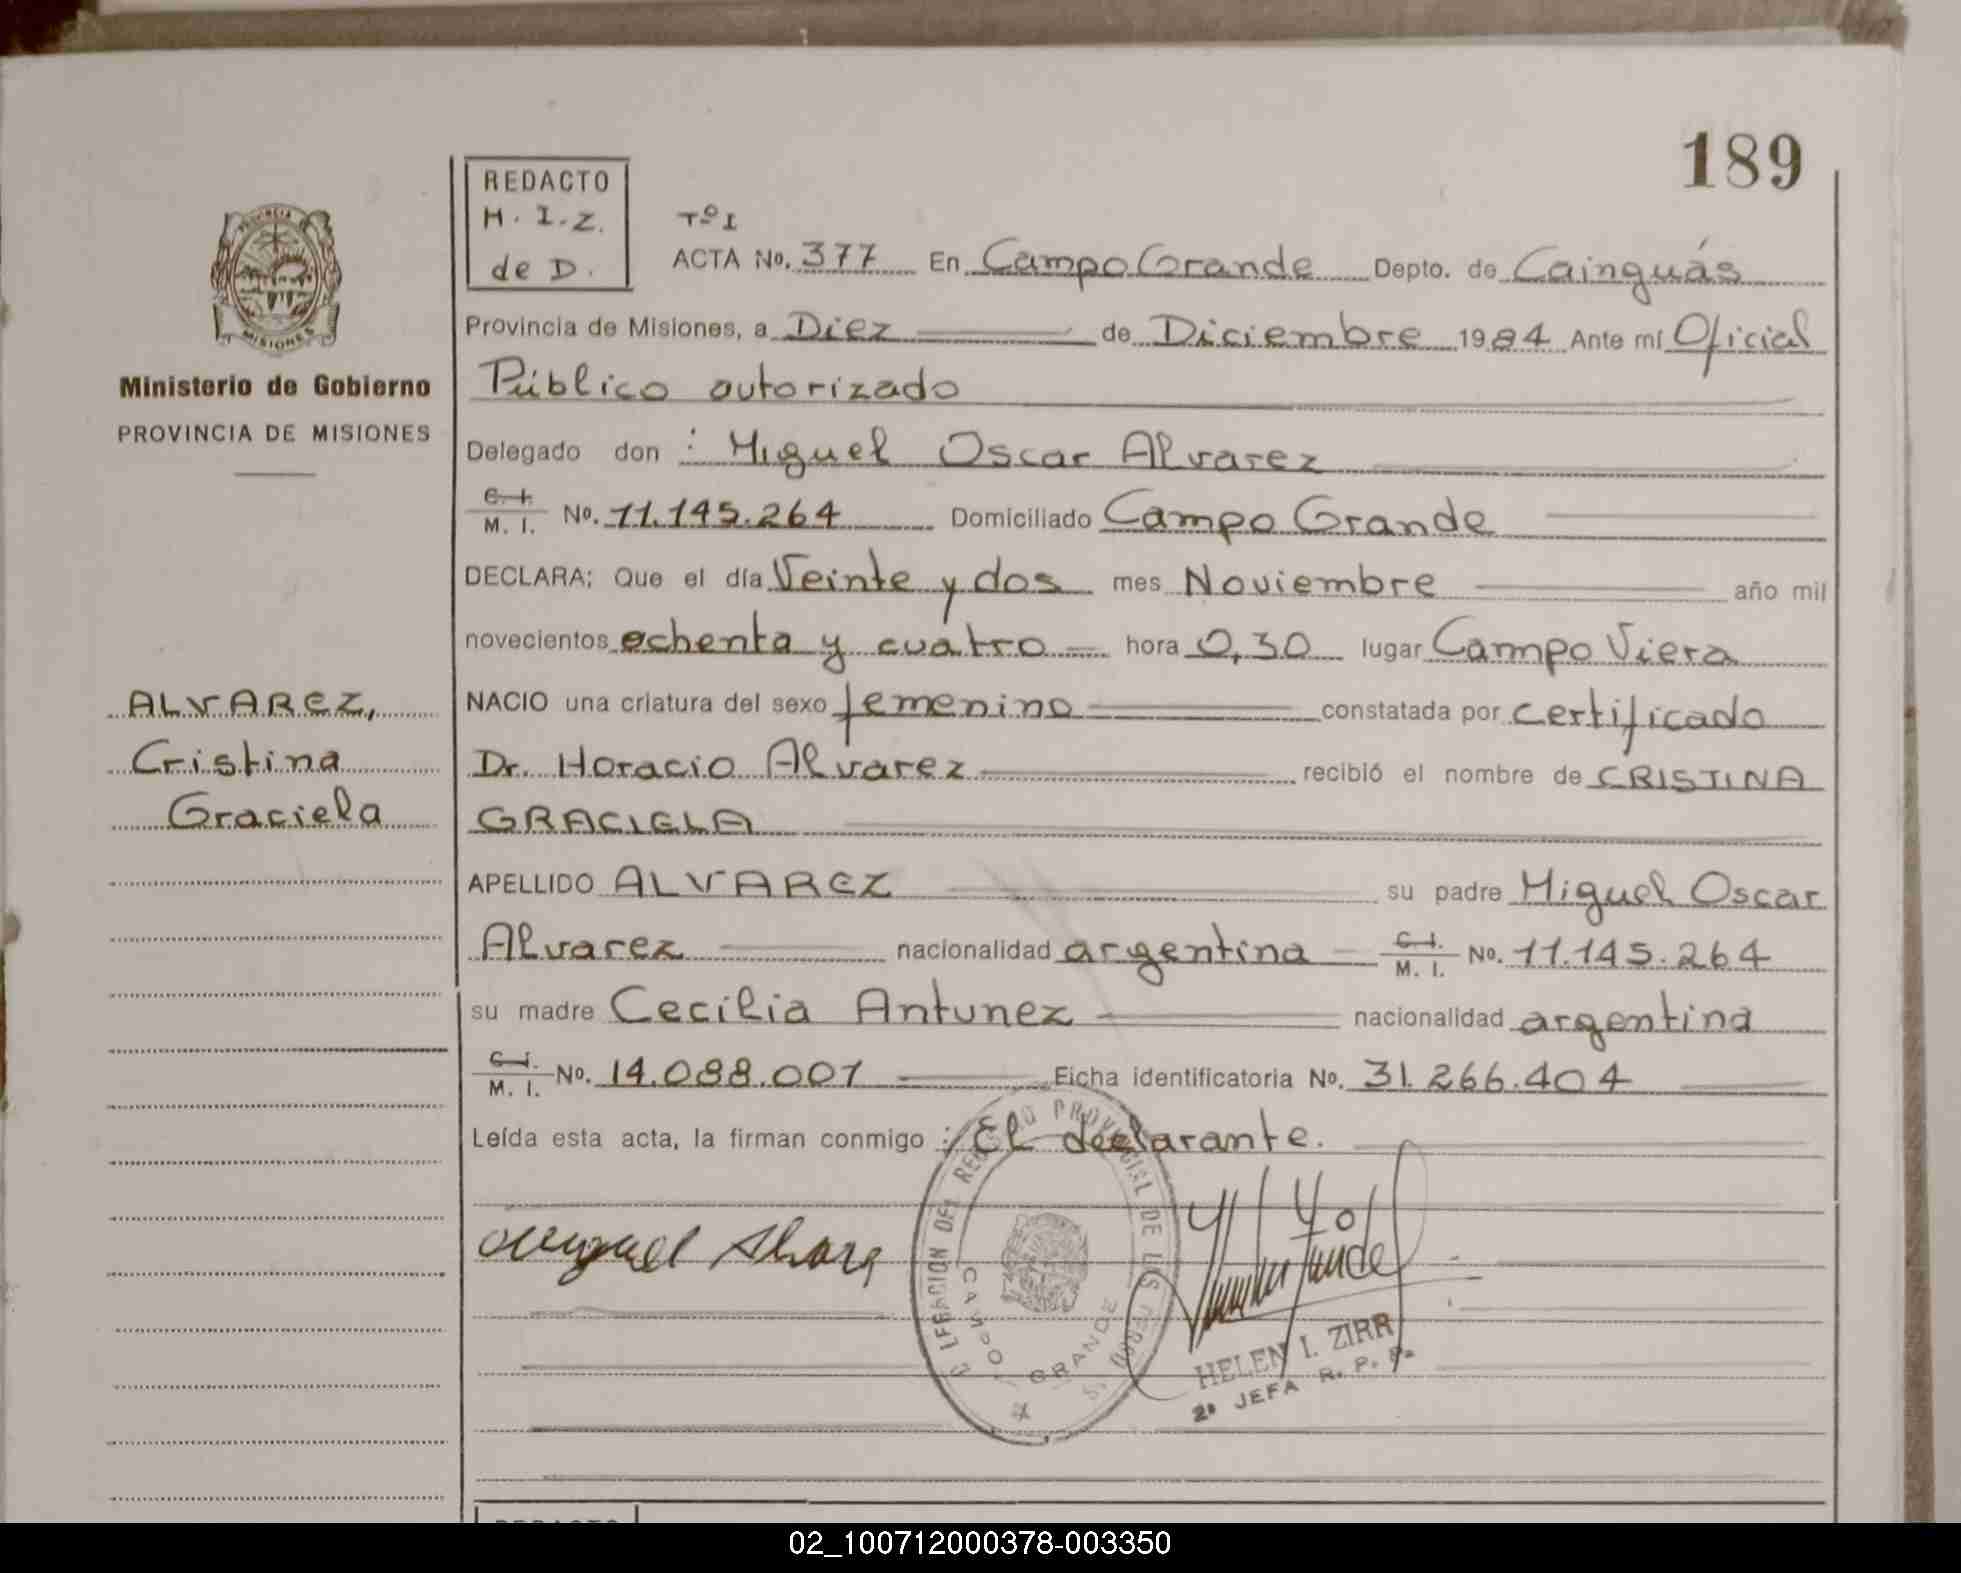 189
REDACTO
H. I. Z.
de D.
PROVINCIA
MISIONES
Ministerio de Gobierno
PROVINCIA DE MISIONES
Tº I
ACTA No. 377 En Campo Grande Depto. de Cainguás
Provincia de Misiones, a Diez de Diciembre 1984 Ante mí Oficial
Público autorizado
Delegado don : Miguel Oscar Alvarez
C. I. / M. I. No. 11.145.264 Domiciliado Campo Grande
DECLARA: Que el día Veinte y dos mes Noviembre año mil
novecientos ochenta y cuatro hora 0,30 lugar Campo Viera
NACIO una criatura del sexo femenino constatada por certificado
Dr. Horacio Alvarez recibió el nombre de CRISTINA
GRACIELA
ALVAREZ,
Cristina
Graciela
APELLIDO ALVAREZ su padre Miguel Oscar
Alvarez nacionalidad argentina C. I. / M. I. No. 11.145.264
su madre Cecilia Antunez nacionalidad argentina
C. I. / M. I. No. 14.088.001 Ficha identificatoria No. 31.266.404
Leída esta acta, la firman conmigo : El declarante.
Miguel Alvarez
DELEGACION DEL REGISTRO PROVINCIAL DE LAS PERSONAS
CAMPO GRANDE
HELEN I. ZIRR
2ª JEFA R. P. P.
REDACTO
02_100712000378-003350